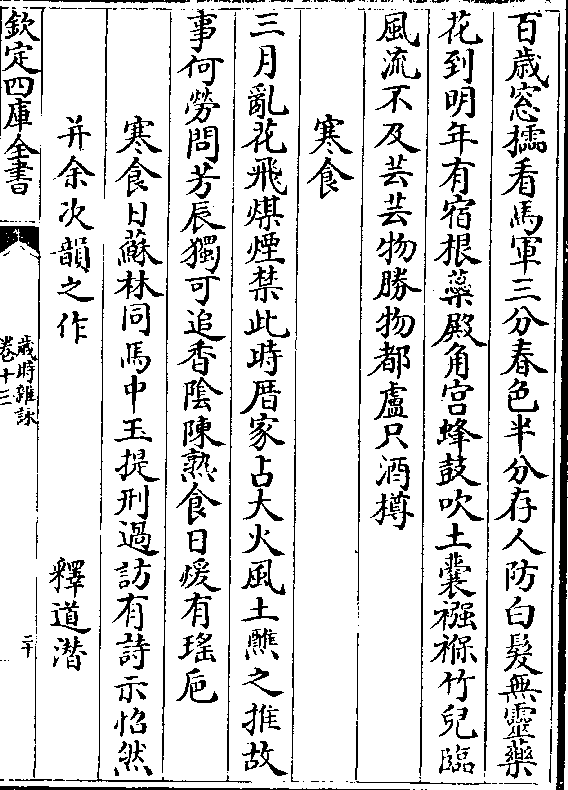 百歳窓擩看馬軍三分春色半分存人防白髮無靈藥
花到明年有宿根藥殿角宫蜂鼓吹土囊襁褓竹兒臨
風流不及芸芸物勝物都盧只酒樽
寒食
三月亂花飛煤煙禁此時厝家占大火風土燋之推故
事何勞問芳辰獨可追香隂陳熟食日煖有瑤巵
寒食日蘇林同馬中玉提刑過訪有詩示怊然
并余次韻之作 釋道潜
欽定四庫全書
歳時雜詠
卷十三
二十